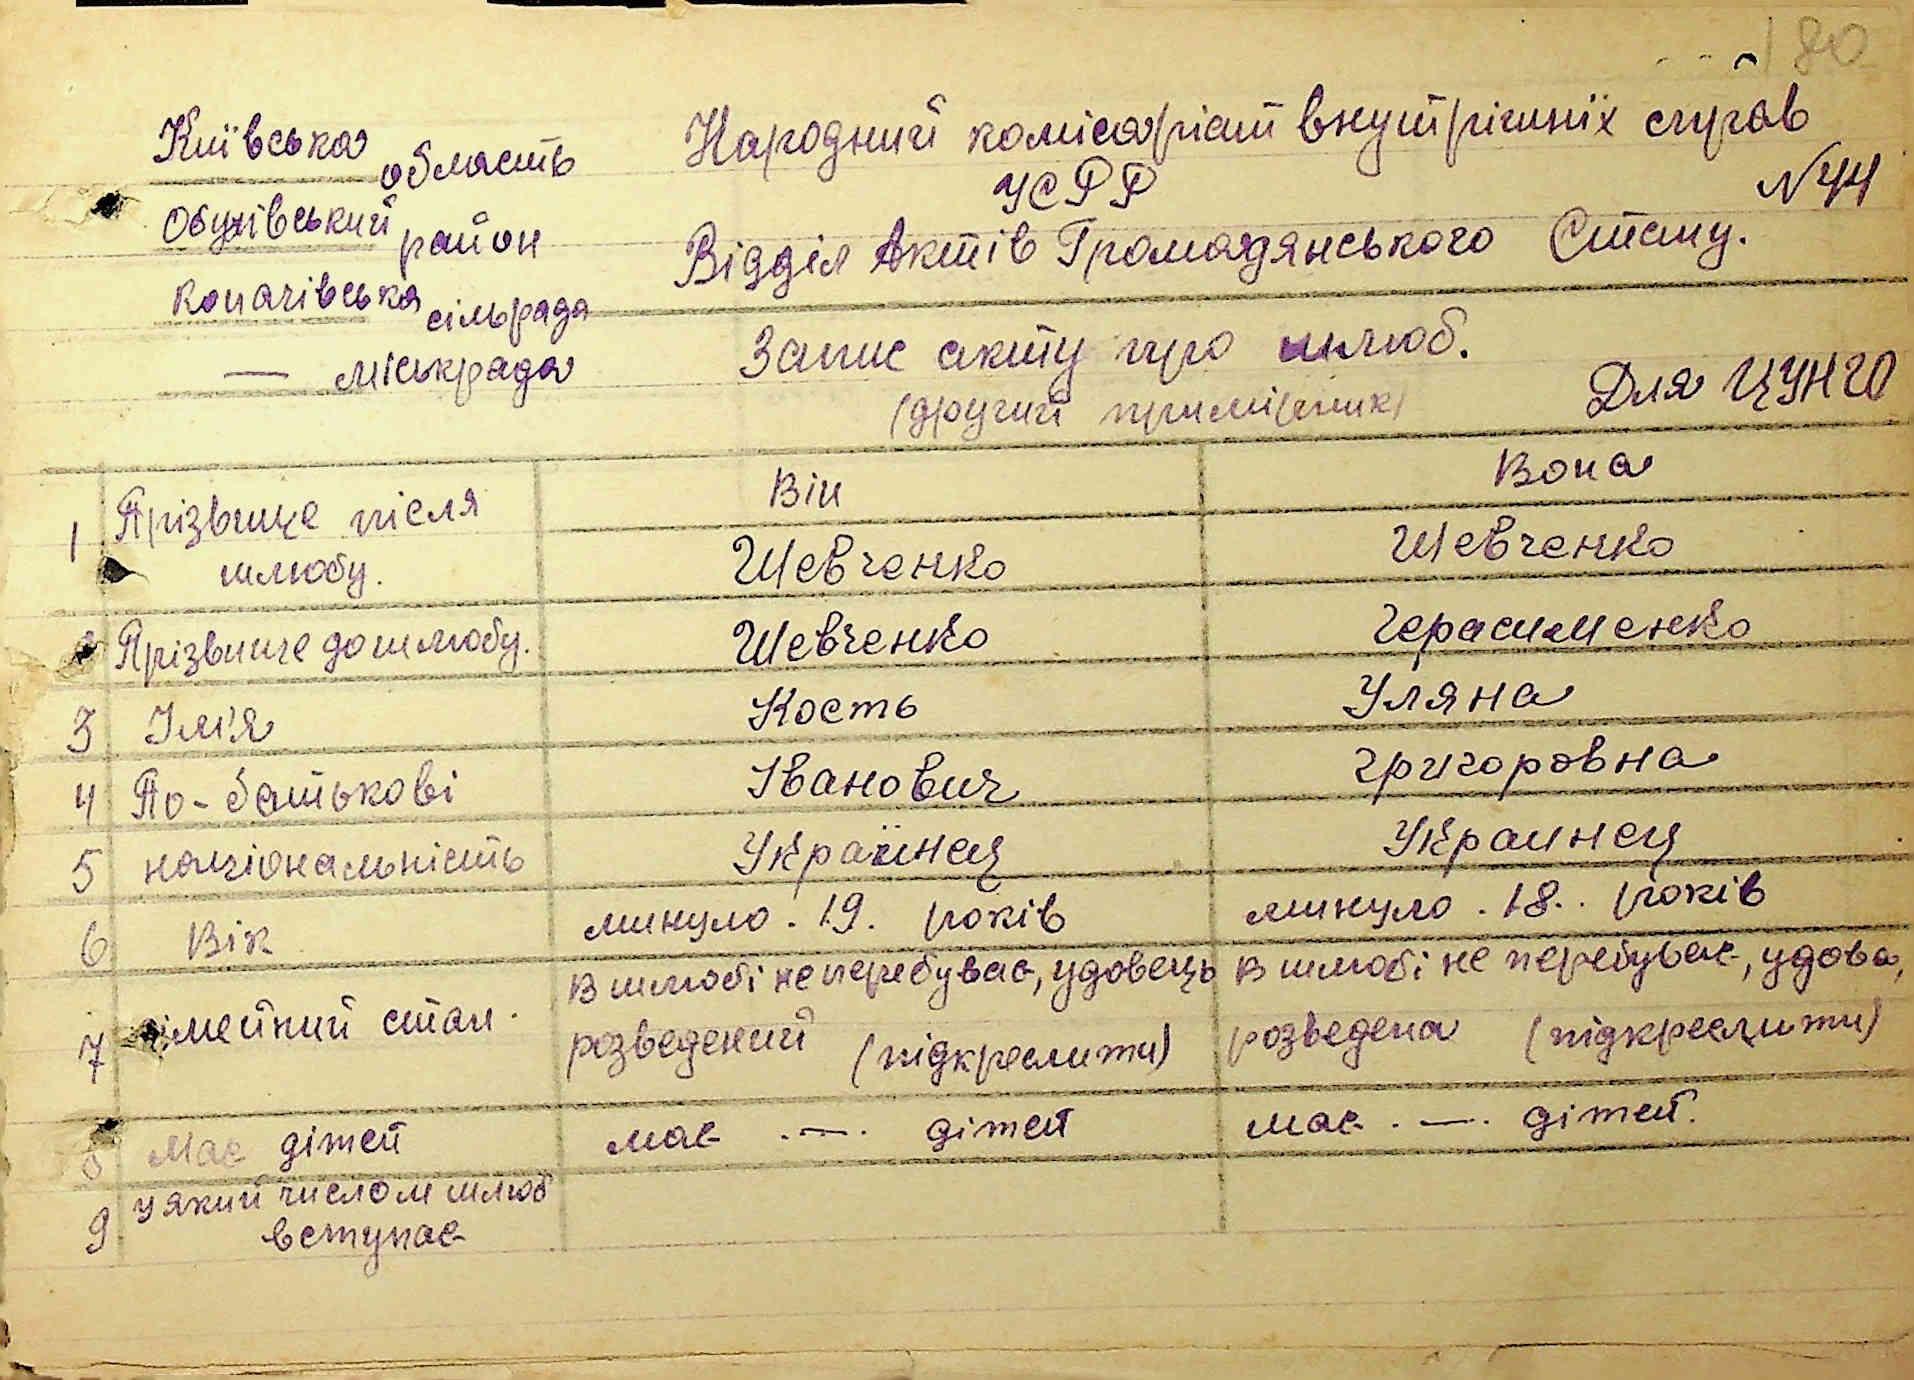 180
Київська область
Обухівський район
Копачівська сільрада
— міськрада
Народний комісаріат внутрішніх справ
УСРР
№ 44
Відділ Актів Громадянського Стану.
Запис акту про шлюб.
(другий примірник)
Для ЦУНГО
Він
Вона
1 Прізвище після шлюбу.
Шевченко
Шевченко
2 Прізвище до шлюбу.
Шевченко
Герасименко
3 Ім'я
Кость
Уляна
4 По-батькові
Іванович
Григоровна
5 національність
Україинец
Украинец
6 Вік
минуло . 19 . років
минуло . 18 . . років
7 сімейний стан.
В шлюбі не перебуває, удовець
розведений (підкреслити)
В шлюбі не перебуває, удова,
розведена (підкреслити)
8 Має дітей
має . — . дітей
має . — . дітей.
9 у який числом шлюб
вступає